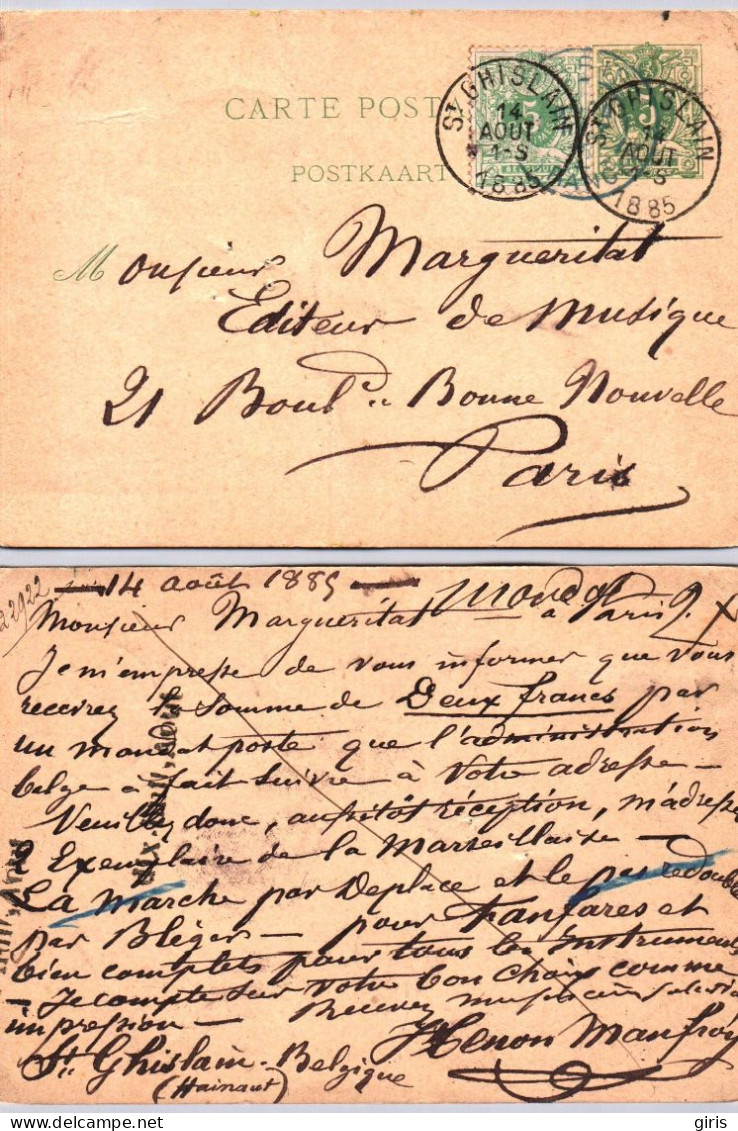 CARTE POST
POSTKAART
ST GHISLAIN
14
AOUT
1-S
1885
ST GHISLAIN
14
AOUT
1-S
1885
5
5
Monsieur Margueritat
Editeur de Musique
21 Boul.d Bonne Nouvelle
Paris
22922
14 août 1885
Mandat
Monsieur Margueritat à Paris
Je m'empresse de vous informer que vous
recevrez la somme de Deux francs par
un mandat poste que l'administration
belge a fait suivre à votre adresse -
Veuillez donc, aussitôt réception, m'adresser
Exemplaire de la Marseillaise -
La Marche par Deplace et le pas redoublé
par Bléger - pour Fanfares et
bien complets pour tous les Instruments
- Je compte sur votre bon choix comme
impression - Recevez mes
St Ghislain - Belgique Henon Manfroy
(Hainaut)
giris